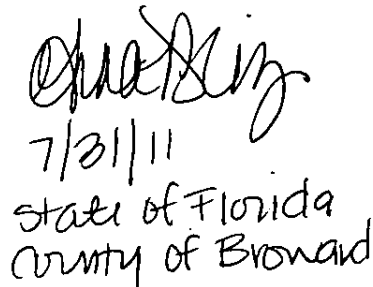 7/31/11
State of Florida
County of Broward